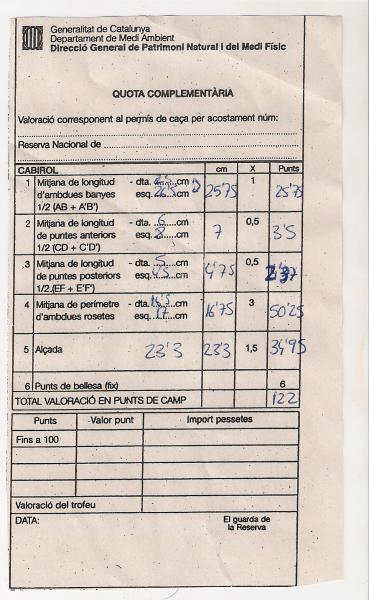 Generalitat de Catalunya
Departament de Medi Ambient
Direcció General de Patrimoni Natural i del Medi Físic
QUOTA COMPLEMENTÀRIA
Valoració corresponent al permís de caça per acostament núm:
Reserva Nacional de
CABIROL cm X Punts
1 Mitjana de longitud - dta. 25 cm
d'ambdues banyes esq. 26'5 cm 25'75 1 25'75
1/2 (AB + A'B')
2 Mitjana de longitud - dta. 6 cm
de puntes anteriors esq. 8 cm 7 0,5 3'5
1/2 (CD + C'D')
3 Mitjana de longitud - dta. 5 cm
de puntes posteriors esq. 4'5 cm 4'75 0,5 2'37
1/2.(EF + E'F')
4 Mitjana de perímetre - dta. 16'5 cm
d'ambdues rosetes esq. 17 cm 16'75 3 50'25
5 Alçada 23'3 23'3 1,5 34'95
6 Punts de bellesa (fix) 6
TOTAL VALORACIÓ EN PUNTS DE CAMP 122
Punts Valor punt Import pessetes
Fins a 100
Valoració del trofeu
DATA: El guarda de
la Reserva